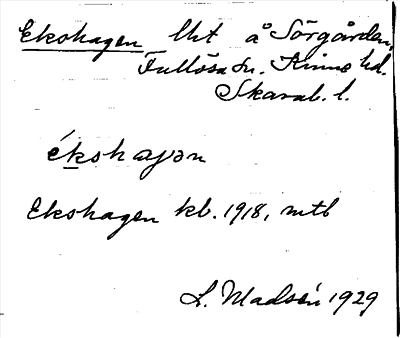 Ekshagen lht å Sörgården,
Fullösa sn. Kinne hd.
Skarab. l.
ékshagən
Ekshagen kb. 1918, mtb
L. Madsén 1929